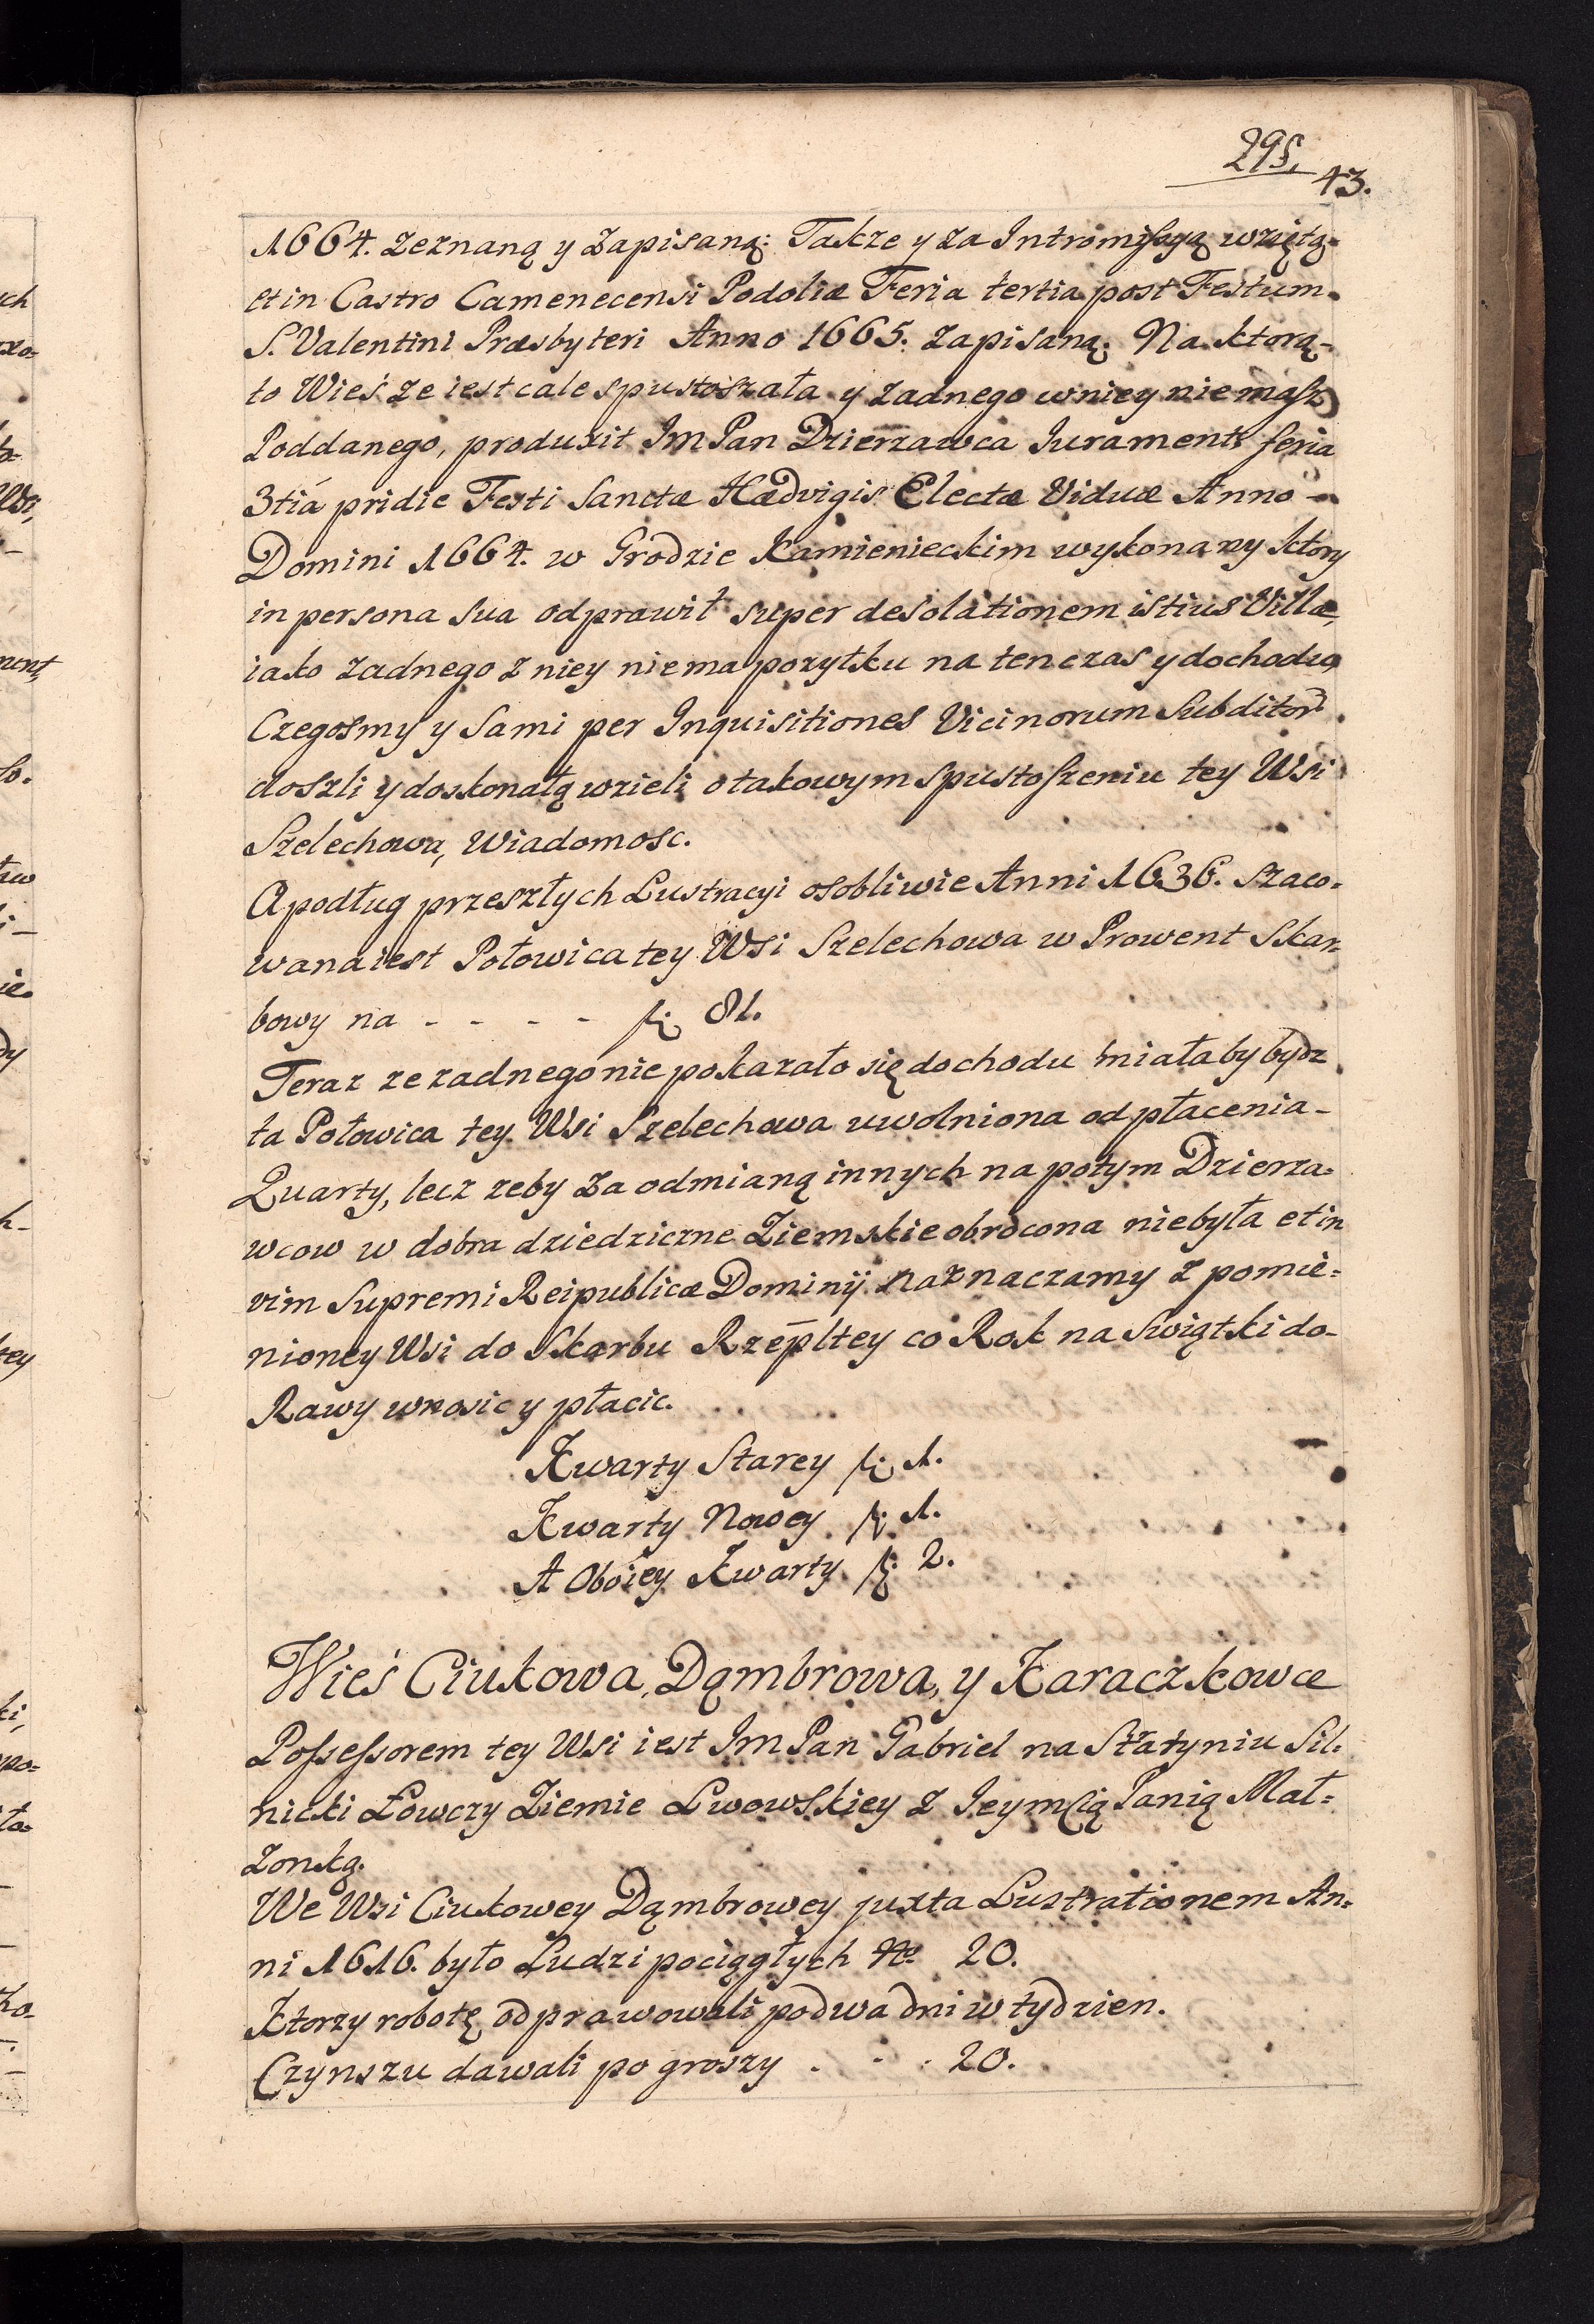 295.
43.
1664. zeznaną y zapisaną: Takze y za Intromissyą wziętą
et in Castro Camenecensi Podoliæ Feria tertia post Festum
S. Valentini Præsbyteri Anno 1665. zapisaną. Na ktorą-
to Wieś ze iest cale spustoszała y zadnego w niey niemasz
Poddanego, produxit Im Pan Dzierzawca Iurament feria
3tiá pridie Festi Sanctæ Hædvigis Electæ Viduæ Anno -
Domini 1664. w Grodzie Kamienieckim wykonany ktory
in persona sua odprawił super desolationem istius Villæ,
iako zadnego z niey niema pozytku na ten czas y dochodu,
Czegosmy y sami per Inquisitiones Vicinorum Subditor
doszli y doskonałą wzieli o takowym spustoszeniu tey Wsi
Szelechowa, Wiadomosc.
A podług przeszłych Lustracyi osobliwie Anni 1636. szaco=
wana iest Połowica tey Wsi Szelechowa w Prowent Skar=
bowy na - - - - f: 81.
Teraz ze zadnego nie pokazało się dochodu miałaby bydz
ta Połowica tey Wsi Szelechowa uwolniona od płacenia -
Quarty, lecz zeby za odmianą innych na potym Dzierza=
wcow w dobra dziedziczne Ziemskie obrócona niebyła et in
vim Supremi Reipublicæ Dominij naznaczamy z pomie=
nioney Wsi do Skarbu Rzepltey co Rok na Swiątki do-
Rawy wnosic y płacic.
Kwarty Starey f: 1.
Kwarty Nowey f: 1.
A Oboiey Kwarty f: 2.
Wieś Ciukowa, Dąmbrowa, y Karaczkowce
Possessorem tey Wsi iest Im Pan Gabriel na Statyniu Sil=
nicki Łowczy Ziemie Lwowskiey z Ieymcią Panią Mał=
zonką.
We Wsi Ciukowey Dąmbrowey juxta Lustrationem An=
ni 1616. było Ludzi pociągłych No 20.
Ktorzy robotę odprawowali po dwa dni w tydzien.
Czynszu dawali po groszy . - . 20.